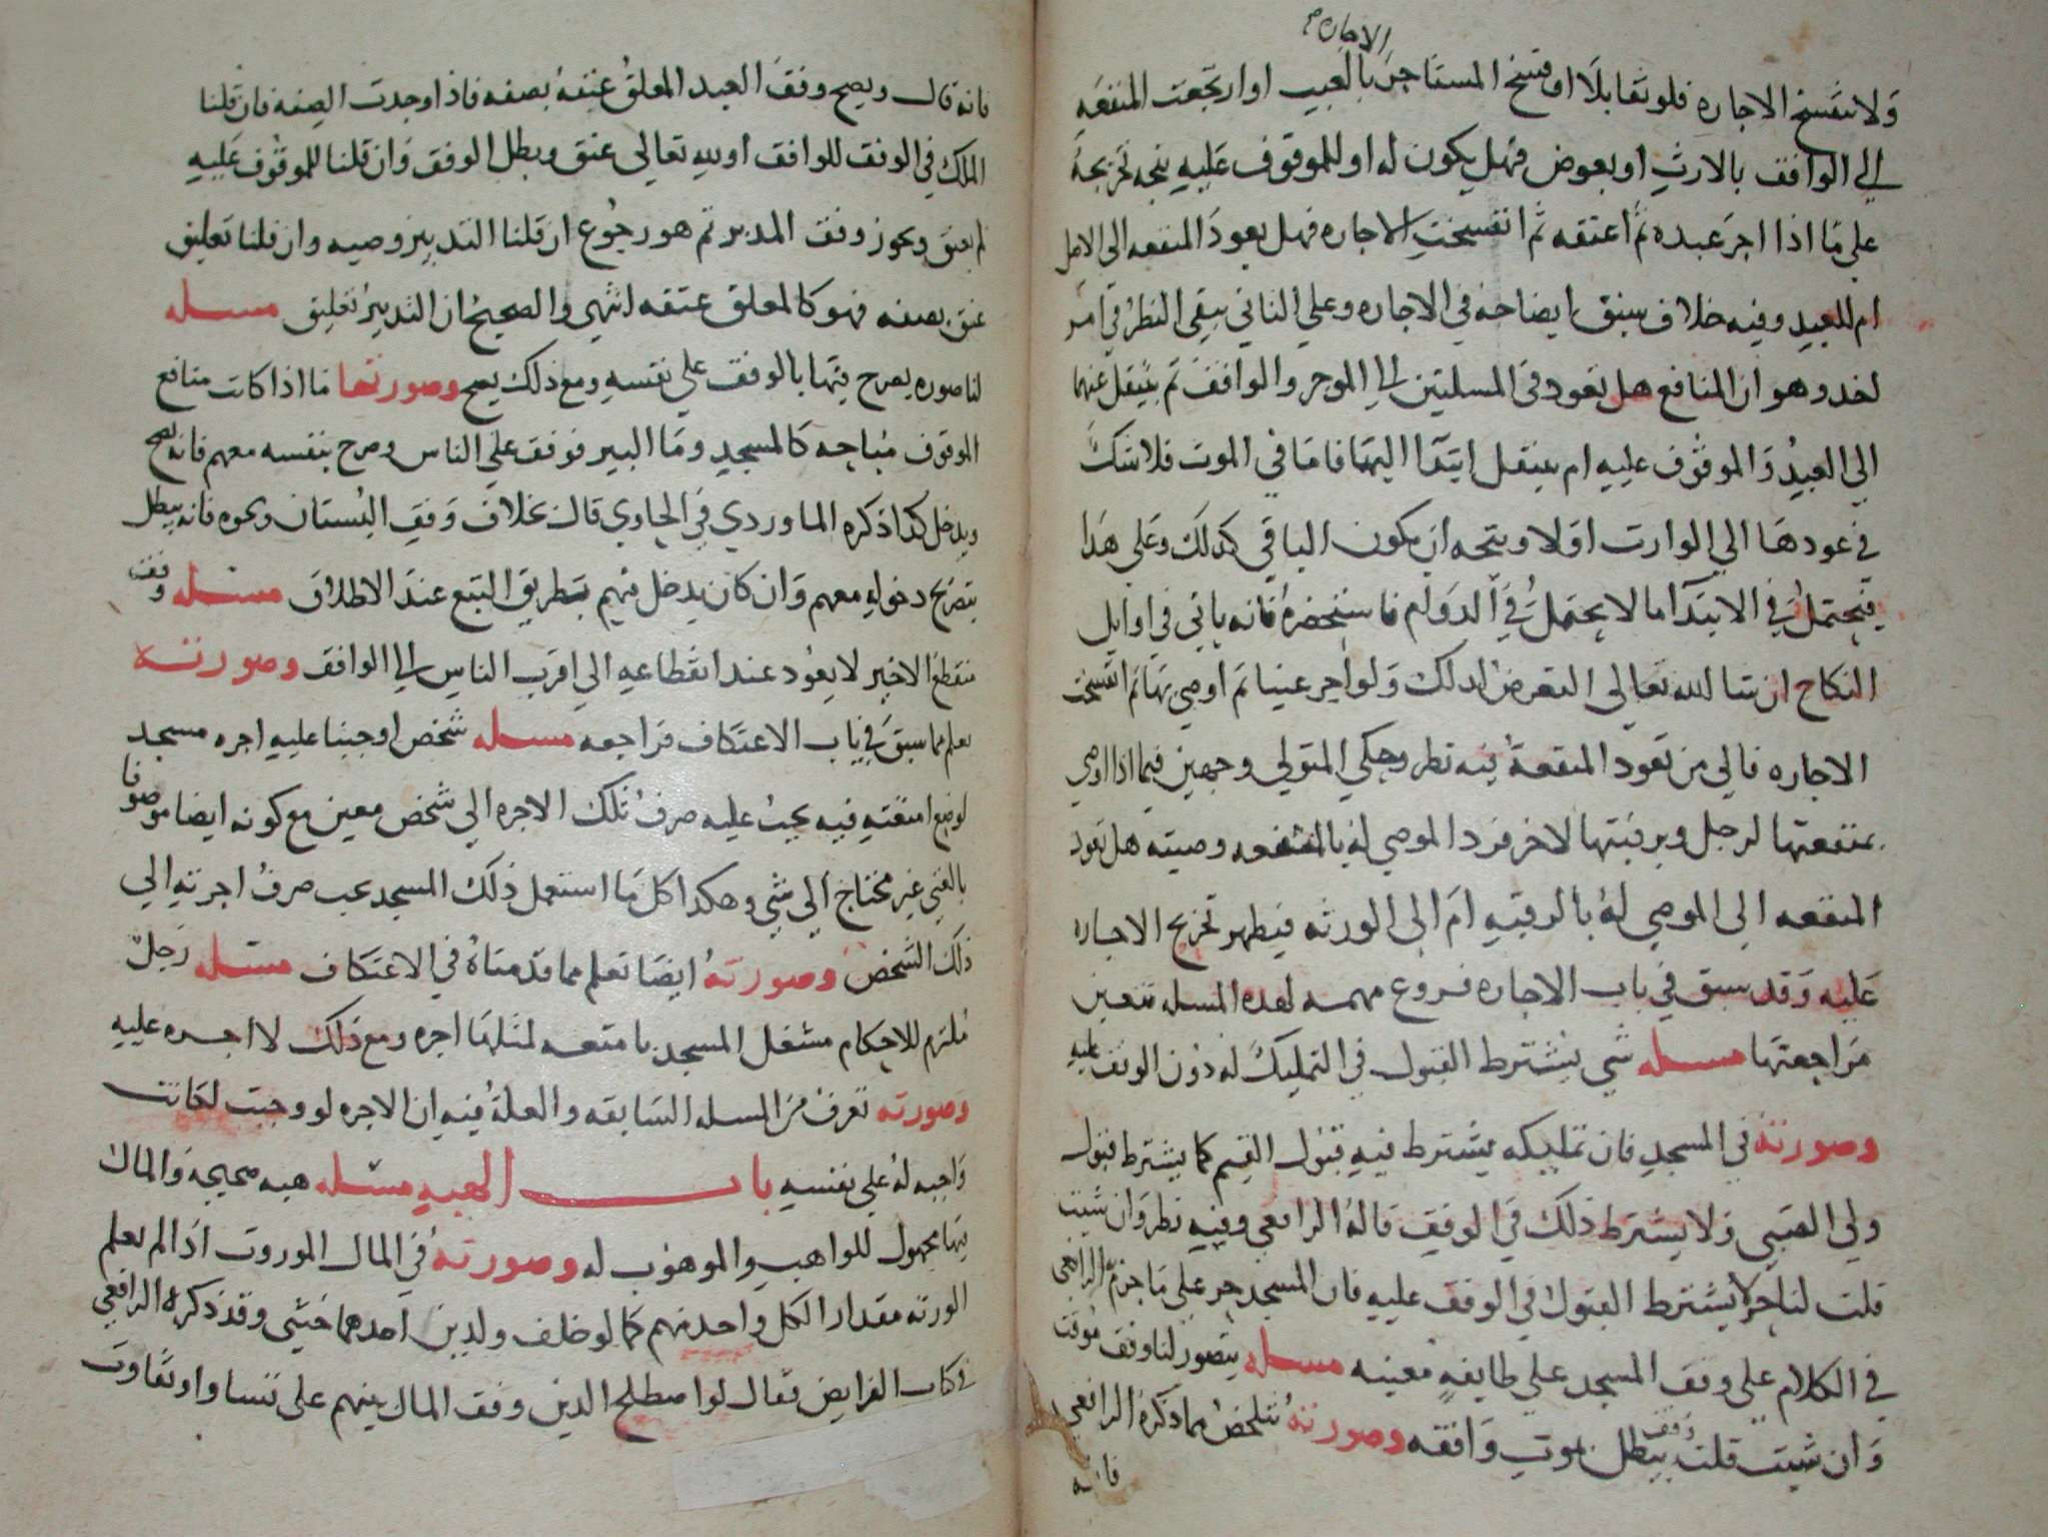 الاجاره
ولا تنفسخ الاجاره فلو تقايلا او فسخ المستاجر بالعيب او ارتجعت المنفعه
الي الواقف بالارث او بعوض فهل يكون له او للموقوف عليه يتجه تخريجه
علي ما اذا اجر عبده ثم اعتقه ثم انفسخت الاجاره فهل يعود المنفعه الي الاصل
ام للعبد وفيه خلاف سبق ايضاحه في الاجاره وعلي الثاني يبقي النظر في امر
اخر وهو ان المنافع هل تعود في المسلتين الي الموجر والواقف ثم ينتقل عنهما
الي العبد والموقوف عليه ام ينتقل ابتدا اليهما فاما في الموت فلا شك
في عودها الي الوارث اولا ويتجه ان يكون الباقي كذلك وعلي هذا
فيحتمل في الابتدا ما لا يحتمل في الدوام فاستحضره فانه ياتي في اوايل
النكاح ان شا الله تعالي التعرض لذلك ولو اجر عينا ثم اوصي بها ثم انفسخت
الاجاره فالي من تعود المنفعة فيه نظر وحكي المتولي وجهين فيما اذا اوصي
بمنفعتها لرجل وبرقبتها لاخر فرد الموصي له بالمنفعه وصيته هل تعود
المنفعه الي الموصي له بالرقبه ام الي الورثه فيظهر تخريج الاجاره
عليه وقد سبق في باب الاجاره فروع مهمه لهذه المسله تتعين
مراجعتها مسله شي يشترط القبول في التمليك له دون الوقف عليه
وصورته في المسجد فان تمليكه يشترط فيه قبول القيم كما يشترط قبول
ولي الصبي ولا يشترط ذلك في الوقف قاله الرافعي وفيه نظر وان شيت
قلت لنا حر لا يشترط القبول في الوقف عليه فان المسجد حر علي ما جزم به الرافعي
في الكلام علي وقف المسجد علي طايفه معينه مسله يتصور لنا وقف موقت
وان شيت قلت وقف يبطل بموت واقفه وصورته تتلخص مما ذكره الرافعي
فانه
فانه قال ويصح وقف العبد المعلق عتقه بصفه فاذا وجدت الصفه فان قلنا
الملك في الوقف للواقف او لله تعالي عتق وبطل الوقف وان قلنا للموقوف عليه
لم يعتق ويجوز وقف المدبر ثم هو رجوع ان قلنا التدبير وصيه وان قلنا تعليق
عتق بصفه فهو كالمعلق عتقه انتهي والصحيح ان التدبير تعليق مسله
لنا صوره يصرح فيها بالوقف علي نفسه ومع ذلك يصح وصورتها ما اذا كانت منافع
الموقوف مباحه كالمسجد وما البير فوقف علي الناس وصرح بنفسه معهم فانه يصح
ويدخل كذا ذكره الماوردي في الحاوي قال بخلاف وقف البستان ونحوه فانه يبطل
بتصريح دخوله معهم وان كان يدخل فيهم بطريق التبع عند الاطلاق مسله وقف
منقطع الاخير لا يعود عند انقطاعه الي اقرب الناس الي الواقف وصورته
تعلم مما سبق في باب الاعتكاف فراجعه مسله شخص اوجبنا عليه اجره مسجد
لوضع امتعته فيه يجب عليه صرف تلك الاجره الي شخص معين مع كونه ايضا موصوفا
بالغني غير محتاج الي شي وهكذا كل ما استعمل ذلك المسجد يجب صرف اجرته الي
ذلك الشخص وصورته ايضا تعلم مما قدمناه في الاعتكاف مسله رجل
ملتزم للاحكام مشغل المسجد بامتعه لمثلها اجره ومع ذلك لا اجره عليه
وصورته تعرف من المسله السابقه والعلة فيه ان الاجره لو وجبت لكانت
واجبه له علي نفسه باب الهبه مسله هبه صحيحه والمال
فيها مجهول للواهب والموهوب له وصورته في المال الموروث اذا لم يعلم
الورثه مقدار الكل واحد منهم كما لو خلف ولدين احدهما خنثي وقد ذكره الرافعي
في كتاب الفرايض فقال لو اصطلح الذين وقف المال بينهم علي تساو او تفاوت